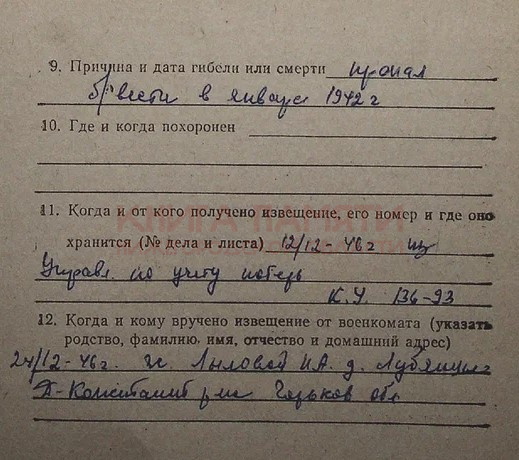 9. Причина и дата гибели или смерти пропал
б/вести в январе 1942 г
10. Где и когда похоронен
КНИГА ПАМЯТИ
11. Когда и от кого получено извещение, его номер и где оно
хранится (№ дела и листа) 12/12-46 г из
Управл. по учету потерь
К.У. 136-93
12. Когда и кому вручено извещение от военкомата (указать
родство, фамилию, имя, отчество и домашний адрес)
24/12-46 г. гр. Лыловой И.А. д.
Д-Констант р-на Горьков обл